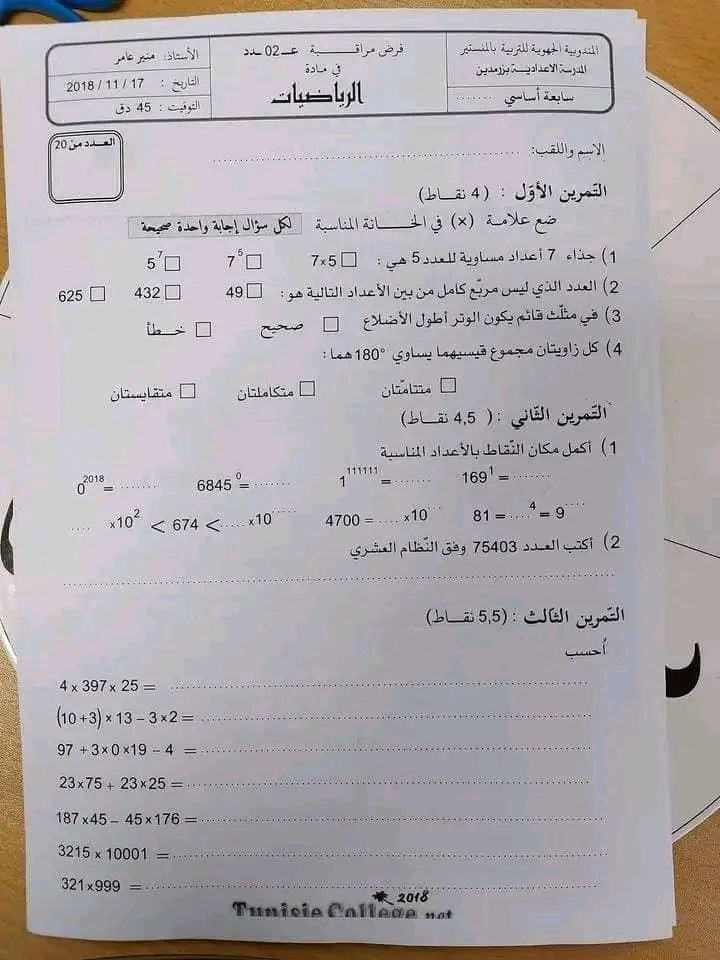 المندوبية الجهوية للتربية بالمنستير
المدرسة الاعدادية بزرمدين
سابعة أساسي ........
فرض مراقبة عـ02ـدد
في مادة
الرياضيات
الأستاذ: منير عامر
التاريخ : 17 / 11 / 2018
التوقيت : 45 دق
العدد من 20
الاسم واللقب: ........................................................
التمرين الأوّل : (4 نقاط)
ضع علامة (×) في الخانة المناسبة لكل سؤال إجابة واحدة صحيحة
1) جذاء 7 أعداد مساوية للعدد 5 هي : □ 7×5 □ 7⁵ □ 5⁷
2) العدد الذي ليس مربّع كامل من بين الأعداد التالية هو: □ 49 □ 432 □ 625
3) في مثلّث قائم يكون الوتر أطول الأضلاع □ صحيح □ خطأ
4) كل زاويتان مجموع قيسيهما يساوي 180° هما :
□ متتامّتان □ متكاملتان □ متقايستان
التّمرين الثّاني : ( 4,5 نقاط)
1) أكمل مكان النّقاط بالأعداد المناسبة
0²⁰¹⁸ = ....... 6845⁰ = ....... 1¹¹¹¹¹¹ = ....... 169¹ = .......
.... ×10² < 674 < .... ×10^.... 4700 = .... ×10^.... 81 = ....⁴ = 9^....
2) أكتب العدد 75403 وفق النّظام العشري
................................................................................
التّمرين الثّالث : (5,5 نقاط)
أحسب
4 × 397 × 25 = ................................................
(10 +3) × 13 – 3 ×2 = ................................................
97 + 3×0 ×19 – 4 = ................................................
23 ×75 + 23 ×25 = ................................................
187 ×45 – 45 ×176 = ................................................
3215 × 10001 = ................................................
321 ×999 = ................................................
2018
Tunisie College.net